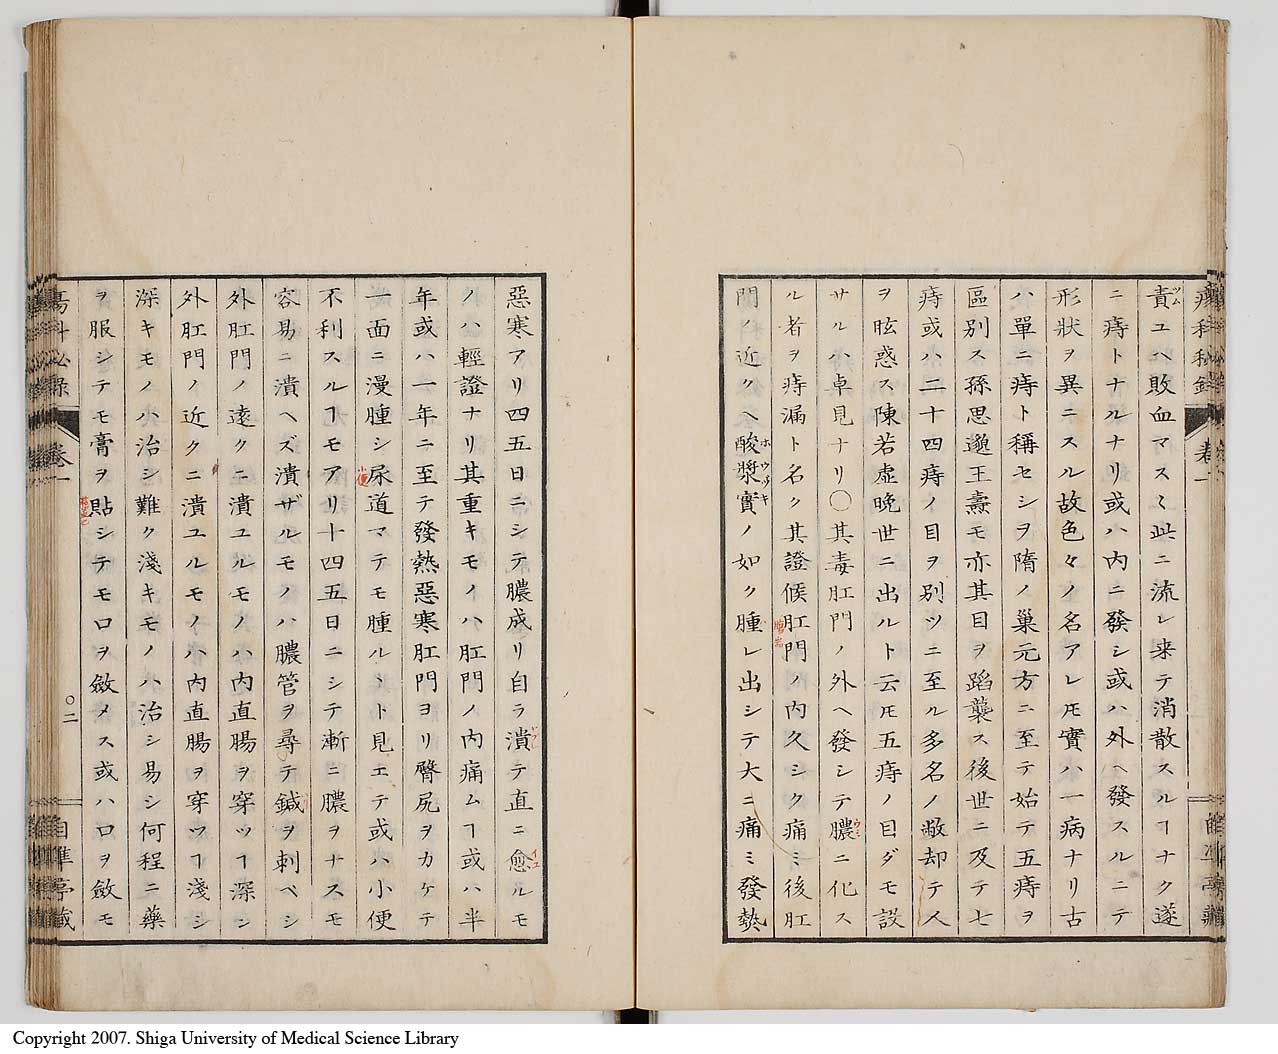 瘍科秘録 卷一
責ユハ敗血マスミ此ニ流レ来テ消散スルヿナク遂
ニ痔トナルナリ或ハ内ニ發シ或ハ外ヘ發スルニテ
形狀ヲ異ニスル故色々ノ名アレ𪜈實ハ一病ナリ古
ハ單ニ痔ト稱セシヲ隋ノ巢元方ニ至テ始テ五痔ヲ
區別ス孫思邈王壽モ亦其目ヲ蹈襲ス後世ニ及テ七
痔或ハ二十四痔ノ目ヲ別ツニ至ル多名ノ敝却テ人
ヲ眩惑ス陳若虛晩世ニ出ルト云𪜈五痔ノ目ダモ設
サルハ卓見ナリ〇其毒肛門ノ外ヘ發シテ膿ニ化ス
ル者ヲ痔漏ト名ク其證候肛門ノ内久シク痛ミ後肛
門ノ近クヘ酸漿實ノ如ク腫レ出シテ大ニ痛ミ發熱
惡寒アリ四五日ニシテ膿成リ自ラ潰テ直ニ愈ルモ
ノハ輕證ナリ其重キモノハ肛門ノ内痛ムヿ或ハ半
年或ハ一年ニ至テ發熱惡寒肛門ヨリ臀尻ヲカケテ
一面ニ漫腫シ尿道マテモ腫ルヽト見エテ或ハ小便
不利スルヿモアリ十四五日ニシテ漸ニ膿ヲナスモ
容易ニ潰ヘズ潰ザルモノハ膿管ヲ尋テ鍼ヲ刺ベシ
外肛門ノ遠クニ潰ユルモノハ内直腸ヲ穿ツヿ深シ
外肛門ノ近クニ潰ユルモノハ内直腸ヲ穿ツヿ淺シ
深キモノハ治シ難ク淺キモノハ治シ易シ何程ニ藥
ヲ服シテモ膏ヲ貼シテモロヲ斂メス或ハロヲ斂モ
瘍科秘録 卷一 〇二 自準亭藏
Copyright 2007. Shiga University of Medical Science Library